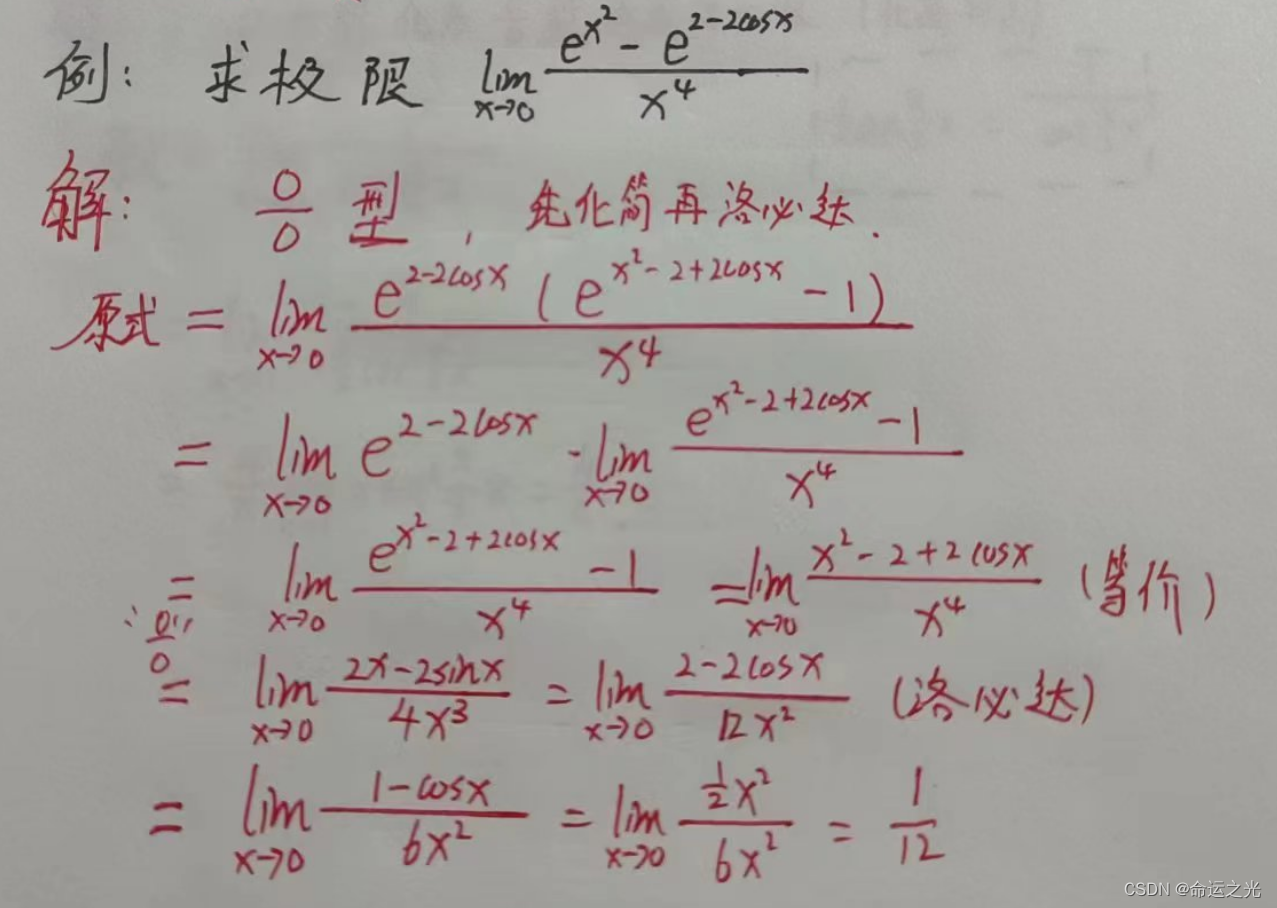 例: 求极限 lim x→0 (e^(x²) - e^(2-2cosx)) / x⁴
解: 0/0 型, 先化简再洛必达.
原式 = lim x→0 e^(2-2cosx) (e^(x²-2+2cosx) - 1) / x⁴
= lim x→0 e^(2-2cosx) · lim x→0 (e^(x²-2+2cosx) - 1) / x⁴
= lim x→0 (e^(x²-2+2cosx) - 1) / x⁴ = lim x→0 (x²-2+2cosx) / x⁴ (等价)
"0/0" = lim x→0 (2x-2sinx) / 4x³ = lim x→0 (2-2cosx) / 12x² (洛必达)
= lim x→0 (1-cosx) / 6x² = lim x→0 (1/2 x²) / 6x² = 1/12
CSDN @命运之光